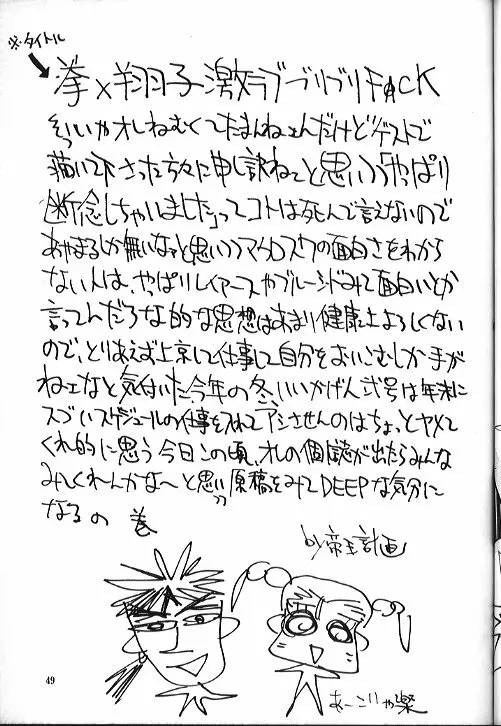 ※タイトル
拳×翔子激ラブラブブリブリF★CK
そういやオレねむくてたまんねェんだけどゲストで
描いて下さった方々に申し訳ねェと思いつつ「やっぱり
断念しちゃいました」ってコトは死んで言えないので
あやまるしか無いなァと思いつつマクロスクの面白さをわから
ない人は、やっぱりレイアースやブルーシードみて面白いとか
言ってんだろな的な思想はあまり健康上よろしくない
ので、とりあえず上京して仕事して自分をおいこむしか手が
ねェなと気付いた今年の冬、いいかげん弐号は年末に
スゴいスケジュールの仕事を入れてアシさせんのはちょっとヤメて
くれ的に思う今日この頃、オレの個人誌が出たらみんな
みてくれーんかな〜と思いつつ原稿をみてDEEPな気分に
なるの巻
by帝王計画
49